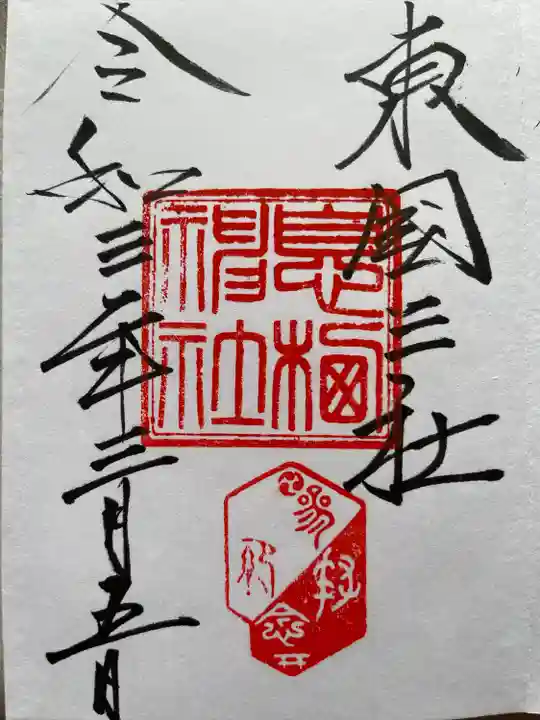 東國三社
息栖
神社
参拝
記念
令和三年三月五日